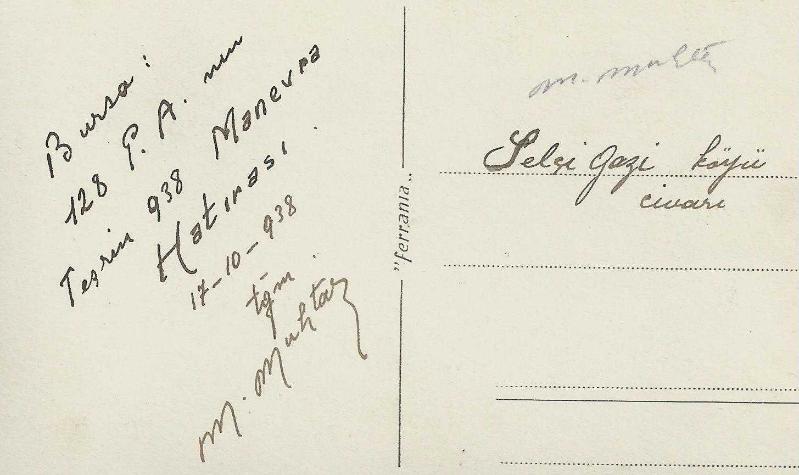 Bursa:
128 P. A. nın
Teşrin 938 Manevra
Hatırası.
17-10-938
tğm.
M. Muhtar
"ferrania"
M. Muhtar
Selçi Gazi köyü
civarı